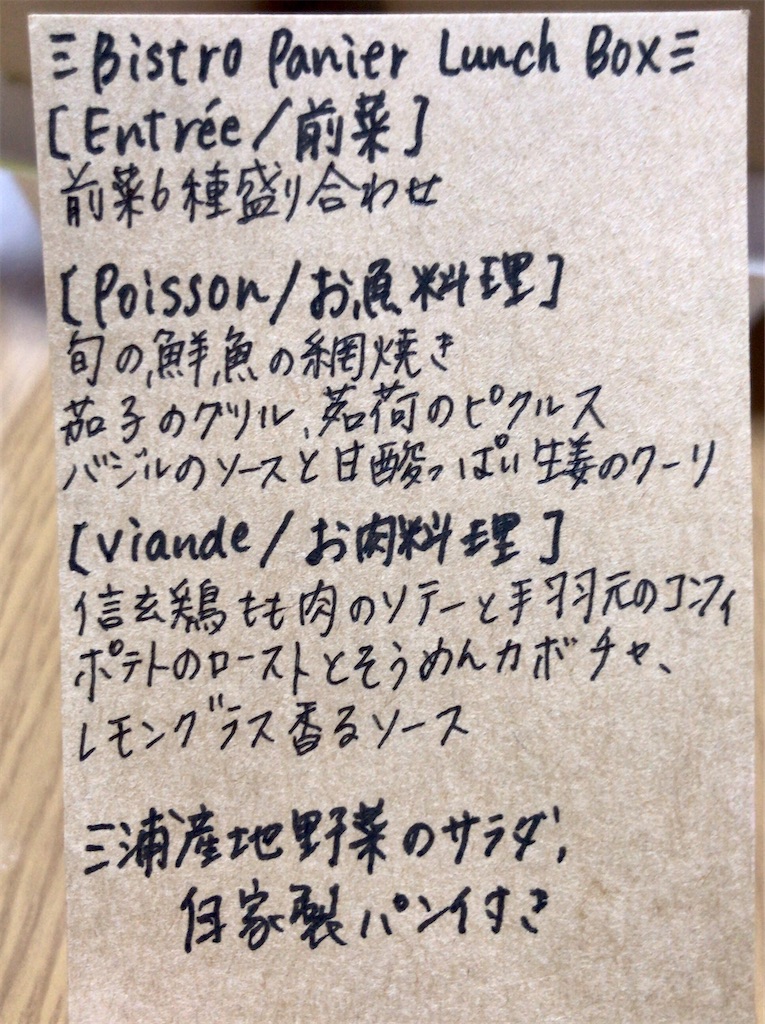 三Bistro Panier Lunch Box三
[Entrée/前菜]
前菜6種盛り合わせ
[Poisson/お魚料理]
旬の鮮魚の網焼き
茄子のグリル、茗荷のピクルス
バジルのソースと甘酸っぱい生姜のクーリ
[viande/お肉料理]
信玄鶏もも肉のソテーと手羽元のコンフィ
ポテトのローストとそうめんカボチャ、
レモングラス香るソース
三浦産地野菜のサラダ、
自家製パン付き